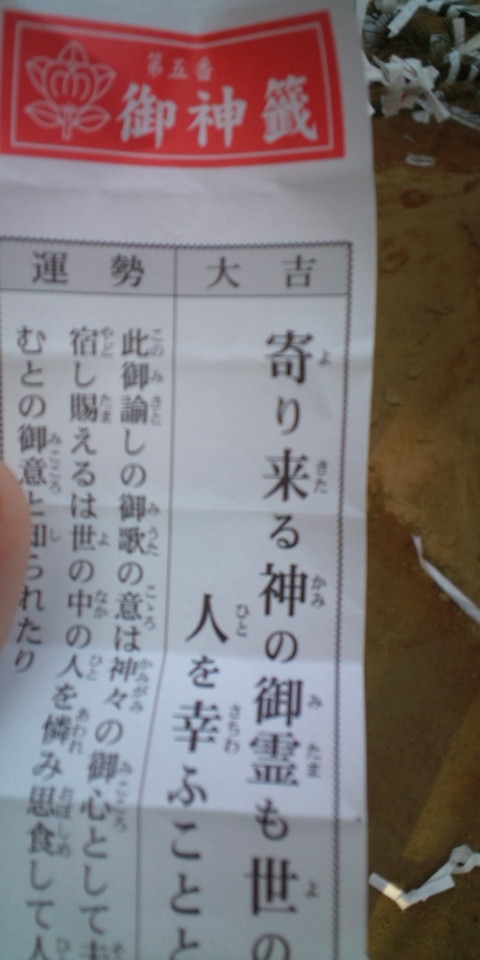 第五番
御神籤
大吉
寄り来る神の御霊も世の
人を幸ふことと
運勢
此御諭しの御歌の意は神々の御心として
宿し賜えるは世の中の人を憐み思食して人
むとの御意と知られたり